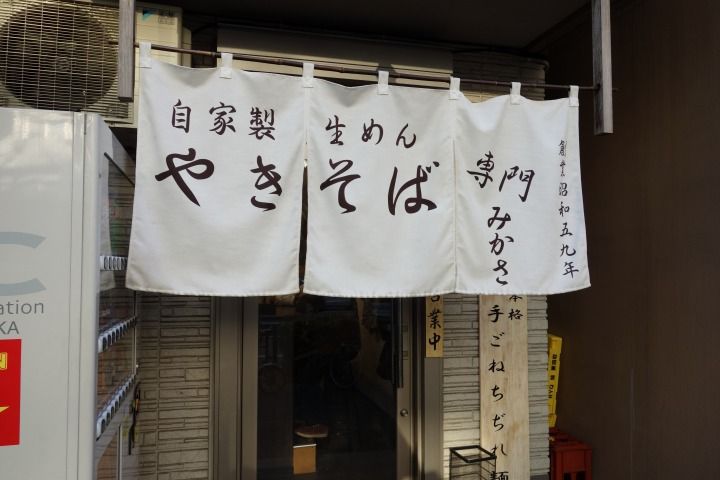 自家製 生めん
やきそば 専門
みかさ
創業昭和五九年
営業中
本格
手ごねちぢれ麺
C
ation
KA